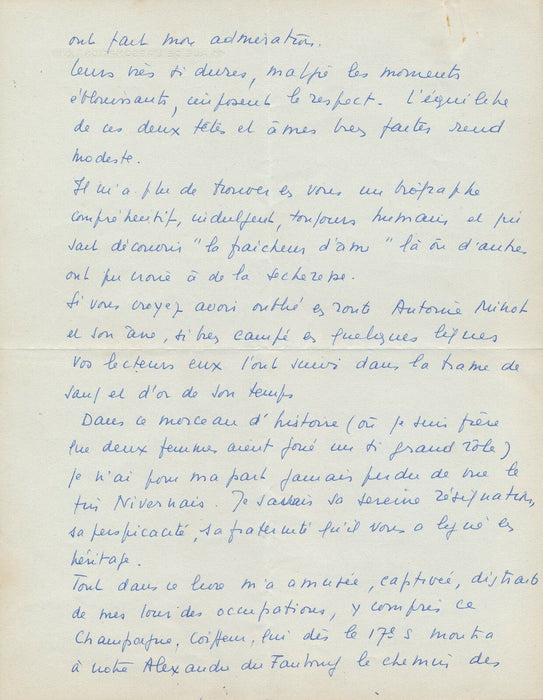 ont fait mon admiration.
Leurs vies si dures, malgré les moments
éblouissants, imposent le respect. L'équilibre
de ces deux têtes et âmes bien faites rend
modeste.
Il m'a plu de trouver en vous un biographe
compréhensif, indulgent, toujours humain et qui
sait découvrir "la fraicheur d'âme" là où d'autres
ont pu croire à de la secheresse.
Si vous croyez avoir oublié en route Antoine
et son âne, si bien campé en quelques lignes
vos lecteurs eux l'ont suivi dans la trame de
sang et d'or de son temps
Dans ce morceau d'histoire (où je suis fière
que deux femmes aient joué un si grand rôle)
je n'ai pour ma part jamais perdu de vue le
fin Nivernais. Je savais sa sereine résignation,
sa perspicacité, sa fraternité qu'il vous a légué en
héritage.
Tout dans ce livre m'a amusée, captivée, distrait
de mes lourdes occupations, y compris ce
Champagne, Coiffeur, qui dès le 17e S montra
à notre Alexandre du Faubourg le chemin des